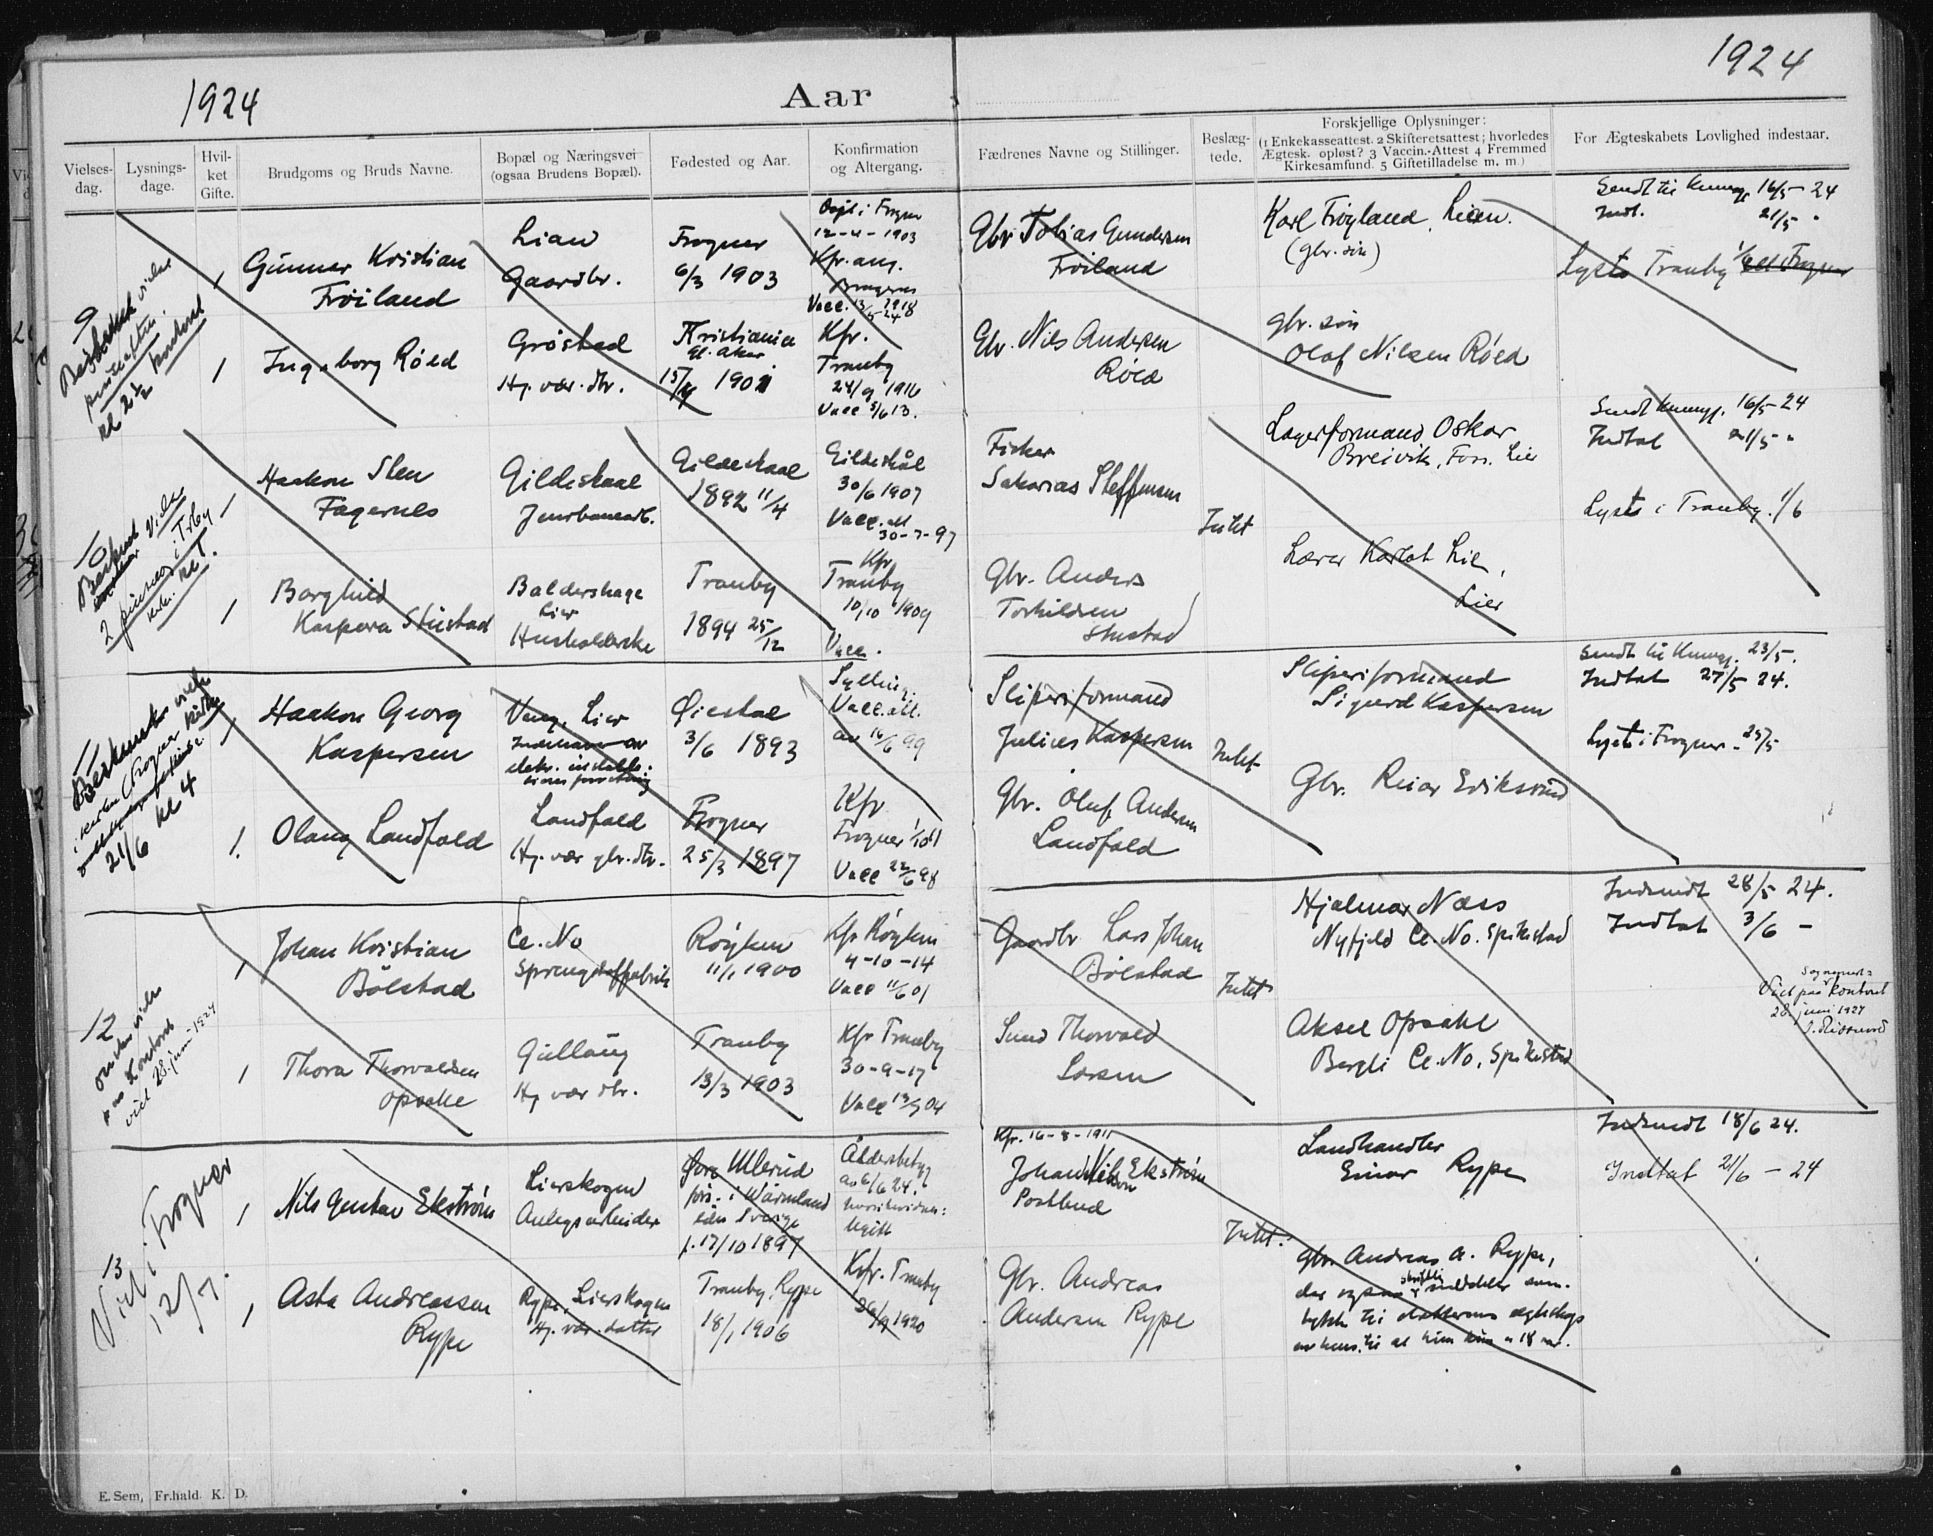 1924
Aar
1924
Vielses-
dag.
Lysnings-
dage.
Hvil-
ket
Gifte.
Brudgoms og Bruds Navne.
Bopæl og Næringsvei
(ogsaa Brudens Bopæl).
Fødested og Aar.
Konfirmation
og Altergang.
Fædrenes Navne og Stillinger.
Beslæg-
tede.
Forskjellige Oplysninger:
(1 Enkekasseattest. 2 Skifteretsattest; hvorledes
Ægtesk. opløst? 3 Vaccin.-Attest 4 Fremmed
Kirkesamfund. 5 Giftetilladelse m. m.)
For Ægteskabets Lovlighed indestaar.
9
kl 2½ kontoret
1
Gunnar Kristian
Frøiland
Lian
Gaardbr.
Frogner
6/3 1903
Døpt i Frogner
12-4-1903
Kfr. ang.
Bragernes
1918
Vacc. 13/5-24
Gbr Tobias Gundersen
Frøiland
Karl Frøyland, Lien.
(gbr. søn)
Sendt til kunng. 16/5-24
Indt. 21/5 "
Lysts Tranby 1/6
1
Ingeborg Røed
Grøstad
Hj. vær. dtr.
Kristiania
Gl. Aker
15/4 1901
Kfr.
Tranby
24/9 1916
Vacc 5/6 13.
Gbr. Nils Andersen
Røed
gbr. søn
Olaf Nilsen Røed
10
2 pinsedag i Trby
kirke. kl 1.
1
Haakon Sten
Fagernes
Gildeskaal
Jernbanearb.
Gildeskaal
1892 11/4
Gildeskål
30/6 1907
Vacc. att
30-7-97
Fisker
Sakarias Steffensen
Intet
Lagerformand Oskar
Breivik, Foss. Lier
Sendt kunng. 16/5-24
Indtat 21/5 "
Lysts i Tranby. 1/6
1
Borghild
Kaspara Stustad
Baldershage
Lier
Husholderske
Tranby
1894 25/12
Kfr
Tranby
10/10 1909
Vacc.
Gbr. Anders
Torkildsen
Stustad
Lærer Karlot Lie,
Lier
i kirken (Frogner kirke
21/6 kl 4
1
Haakon Georg
Kaspersen
Lier
Indehaver av
elektr. installa-
sions forretning
Øiestad
3/6 1893
Sylling.
Vacc. att.
av 16/6 99
Sliperiformand
Julius Kaspersen
Intet
Sliperiformand
Sigurd Kaspersen
Sendt til kunng. 23/5.
Indtat 27/5 24.
Lysts i Frogner - 25/5
1.
Olaug Landfald
Landfald
Hj. vær gbr. dtr.
Frogner
25/3 1897
Kfr
Frogner
Vacc 22/6 98
Gbr. Oluf Andersen
Landfald
Gbr. Reiar Eriksrud
12
ønskes viede
paa kontoret
viet 28. juni-1924
1
Johan Kristian
Bölstad
Ce. No
Sprængstoffabrik
Røyken
11/1 1900
Kfr Røyken
4-10-14
Vacc 11/6 01
Gaardbr Lars Johan
Bölstad
Intet
Hjalmar Næss
Nyfjeld Ce. No. Spikestad
Indsendt 28/5 24.
Indtat 3/6 -
Viet paa sogneprest-
kontoret
28 juni 1924
1
Thora Thorvaldsen
Opsahl
Gullaug
Hj vær dtr.
Tranby
13/3 1903
Kfr Tranby
30-9-17
Thorvald
Larsen
Aksel Opsahl
Bergli Ce. No. Spikestad
13
Viet i Frogner
12/7.
1
Nils Gustav Ekstrøm
Lierskogen
Anlegsarbeider
Øvre Ullerud
förs. i Wärmland
län Sverige
f. 17/10 1897
Åldersbetyg
av 6/6 24.
Kfr. 16-8-1911
Johan Nilsson Ekström
Postbud
Intet.
Landhandler
Einar Rype
Indsendt 18/6 24.
Indtat 21/6 - 24
1
Asta Andreassen
Rype
Rype, Lierskogen
Hj. vær. datter
Tranby, Rype
18/1 1906
Kfr. Tranby
26/9 1920
Gbr. Andreas
Andersen Rype
Gbr. Andreas A. Rype,
der ogsaa skriftlig meddeler sam-
tykke til datterens ægteskap
E. Sem, Fr.hald. K. D.